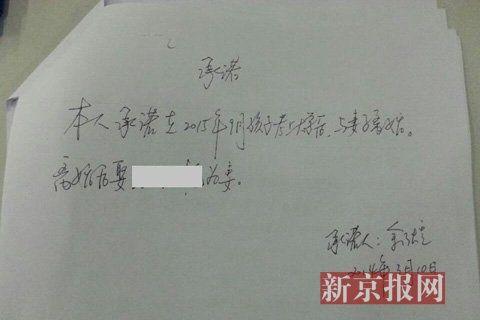 承诺
本人承诺在2015年9月孩子考上大学后，与妻子离婚。
离婚后娶 为妻。
承诺人：
2014年3月10日
新京报网